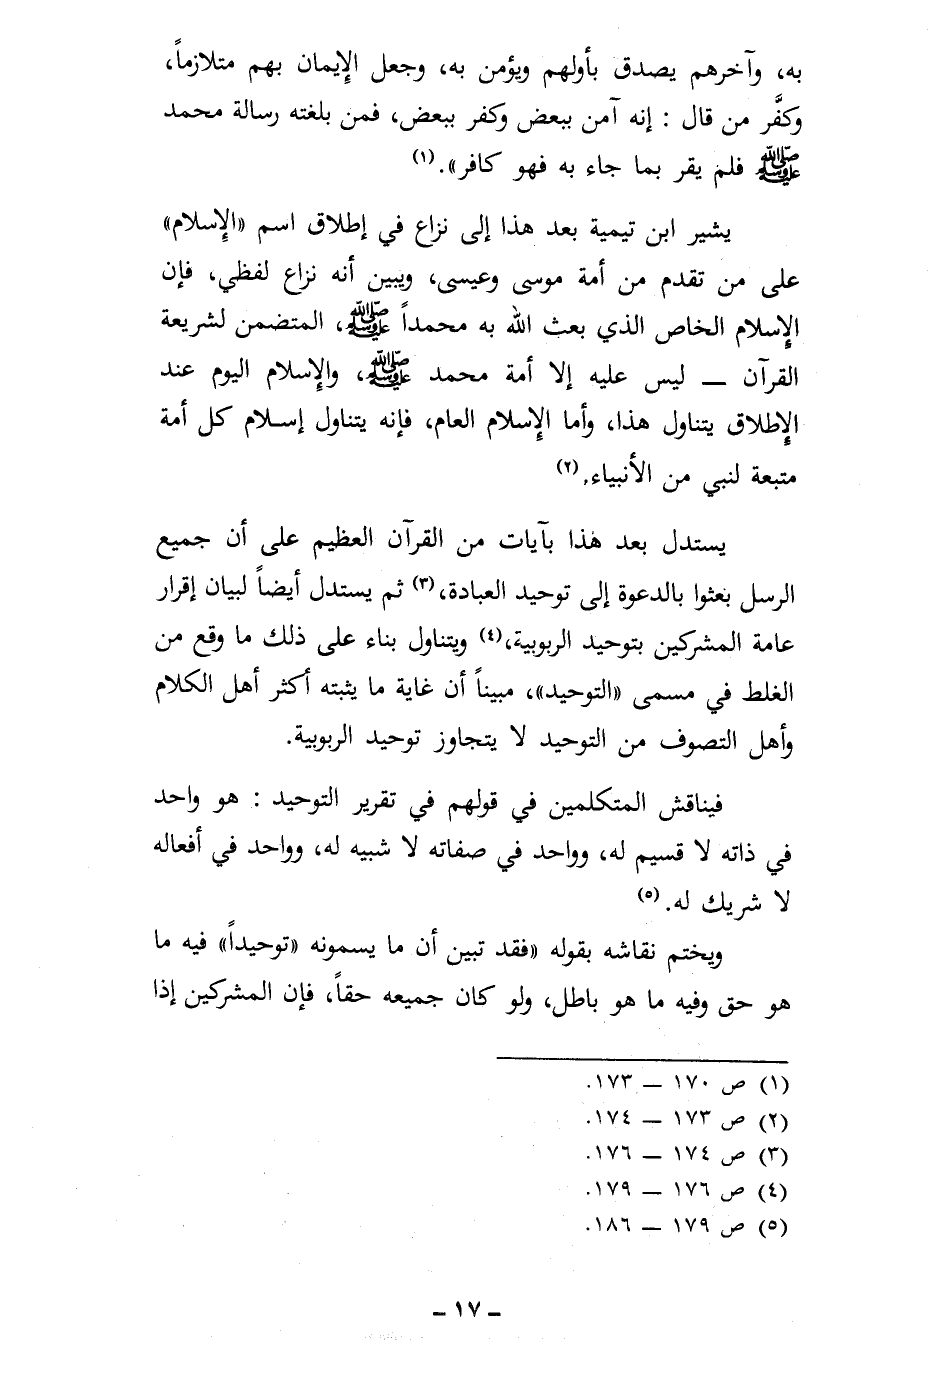 به، وآخرهم يصدق بأولهم ويؤمن به، وجعل الإيمان بهم متلازماً،
وكفَّر من قال : إنه آمن ببعض وكفر ببعض، فمن بلغته رسالة محمد
ﷺ فلم يقر بما جاء به فهو كافر». (١)
يشير ابن تيمية بعد هذا إلى نزاع في إطلاق اسم «الإسلام»
على من تقدم من أمة موسى وعيسى، ويبين أنه نزاع لفظي، فإن
الإسلام الخاص الذي بعث الله به محمداً ﷺ، المتضمن لشريعة
القرآن — ليس عليه إلا أمة محمد ﷺ، والإسلام اليوم عند
الإطلاق يتناول هذا، وأما الإسلام العام، فإنه يتناول إسلام كل أمة
متبعة لنبي من الأنبياء. (٢)
يستدل بعد هذا بآيات من القرآن العظيم على أن جميع
الرسل بعثوا بالدعوة إلى توحيد العبادة، (٣) ثم يستدل أيضاً لبيان إقرار
عامة المشركين بتوحيد الربوبية، (٤) ويتناول بناء على ذلك ما وقع من
الغلط في مسمى «التوحيد»، مبيناً أن غاية ما يثبته أكثر أهل الكلام
وأهل التصوف من التوحيد لا يتجاوز توحيد الربوبية.
فيناقش المتكلمين في قولهم في تقرير التوحيد : هو واحد
في ذاته لا قسيم له، وواحد في صفاته لا شبيه له، وواحد في أفعاله
لا شريك له. (٥)
ويختم نقاشه بقوله «فقد تبين أن ما يسمونه «توحيداً» فيه ما
هو حق وفيه ما هو باطل، ولو كان جميعه حقاً، فإن المشركين إذا
(١) ص ١٧٠ — ١٧٣.
(٢) ص ١٧٣ — ١٧٤.
(٣) ص ١٧٤ — ١٧٦.
(٤) ص ١٧٦ — ١٧٩.
(٥) ص ١٧٩ — ١٨٦.
- ١٧ -